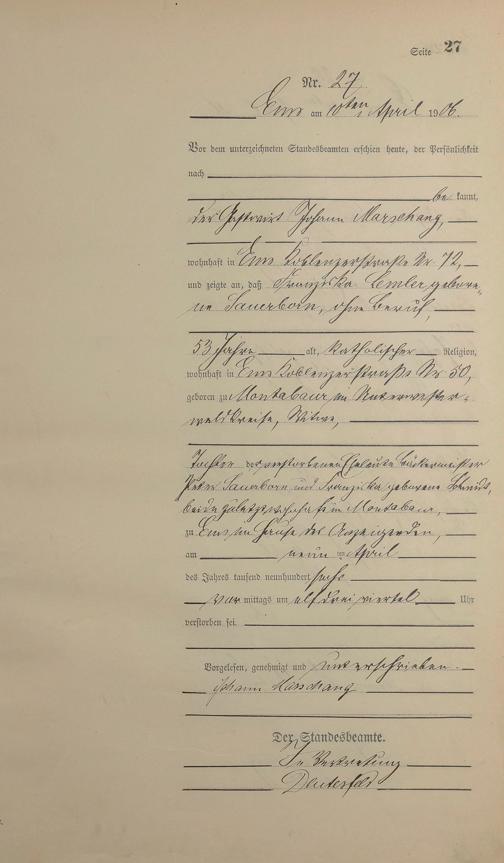 Seite 27
Nr. 27
Ems am 10ten April 1906.
Vor dem unterzeichneten Standesbeamten erschien heute, der Persönlichkeit
nach
bekannt,
der Gastwirt Johann Marschang,
wohnhaft in Ems Koblenzerstraße Nr. 72,
und zeigte an, daß Franziska Lemler gebore=
ne Sauerborn, ohne Beruf,
53 Jahre alt, katholischer Religion,
wohnhaft in Ems Koblenzerstraße Nr 50,
geboren zu Montabaur im Unterwester=
waldkreise, Witwe,
Tochter der verstorbenen Eheleute Bäckermeister
Peter Sauerborn und Franziska geborene
beide zuletzt wohnhaft in Montabaur,
zu Ems, im Hause des Anzeigenden,
am neunten April
des Jahres tausend neunhundert sechs
vormittags um elf drei viertel Uhr
verstorben sei.
Vorgelesen, genehmigt und unterschrieben.
Johann Marschang
Der Standesbeamte.
In Vertretung